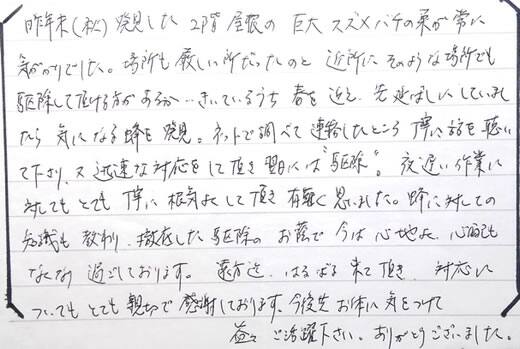 昨年末(秋)発見した 2階 屋根の 巨大 スズメバチの巣が常に
気がかりでした。場所も厳しい所だったのと 近所にそのような場所でも
駆除して頂ける方があるか‥きいているうち 春を迎え 先延ばしにしていまし
たら 気になる蜂を発見。ネットで調べて 連絡したところ 丁寧に話を聴い
て下さり、又 迅速な対応をして頂き 翌日には"駆除"。夜遅い作業に
対しても とても 丁寧に 根気よくして頂き 有難く思いました。蜂に対しての
知識も 教わり 徹底した駆除の お蔭で 今は 心地よく 心配も
なくなり 過ごしております。 遠方迄 はるばる 来て頂き 対応に
ついても とても 親切で 感謝しております。今後共 お体に 気をつけて
益々 ご活躍下さい。ありがとうございました。